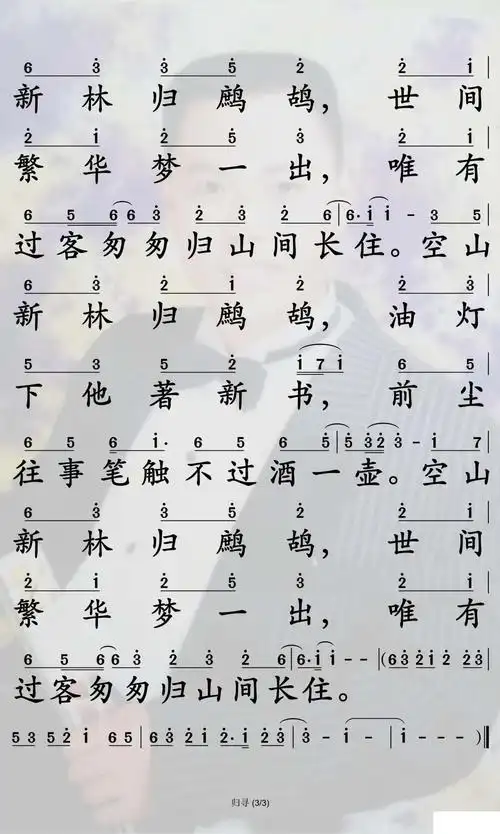 6 3 3 5 2 2 i
新林归鹧鸪，世间
2 i 2 5 3 2 i
繁华梦一出，唯有
6 5 6 6 3 2 3 2 6 6· i i - 3 5
过客匆匆归山间长住。空山
6 3 2 i 2 2 3
新林归鹧鸪，油灯
5 3 5 2 i 7 i 6 5
下他著新书，前尘
6 5 6 i· 6 5 6 5 5 3 2 3 - i 7
往事笔触不过酒一壶。空山
6 3 3 5 2 2 i
新林归鹧鸪，世间
2 i 2 5 3 2 i
繁华梦一出，唯有
6 5 6 6 3 2 3 2 6 6· i i - - (6 3 2 i 2 2 3
过客匆匆归山间长住。
5 3 5 2 i 6 6 3 2 i 2· i 2 3 3 - i - i - - )
归寻 (3/3)